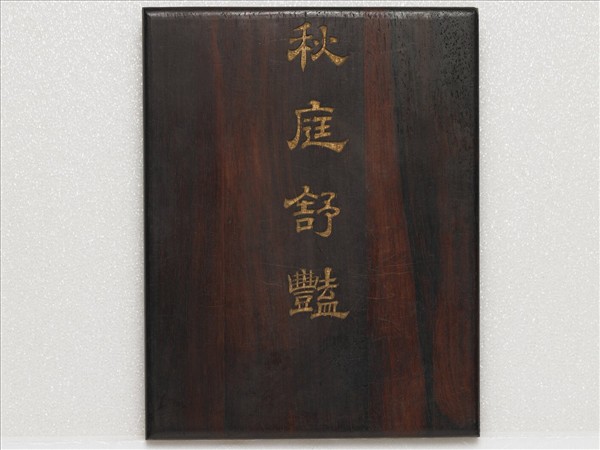 秋庭舒豔